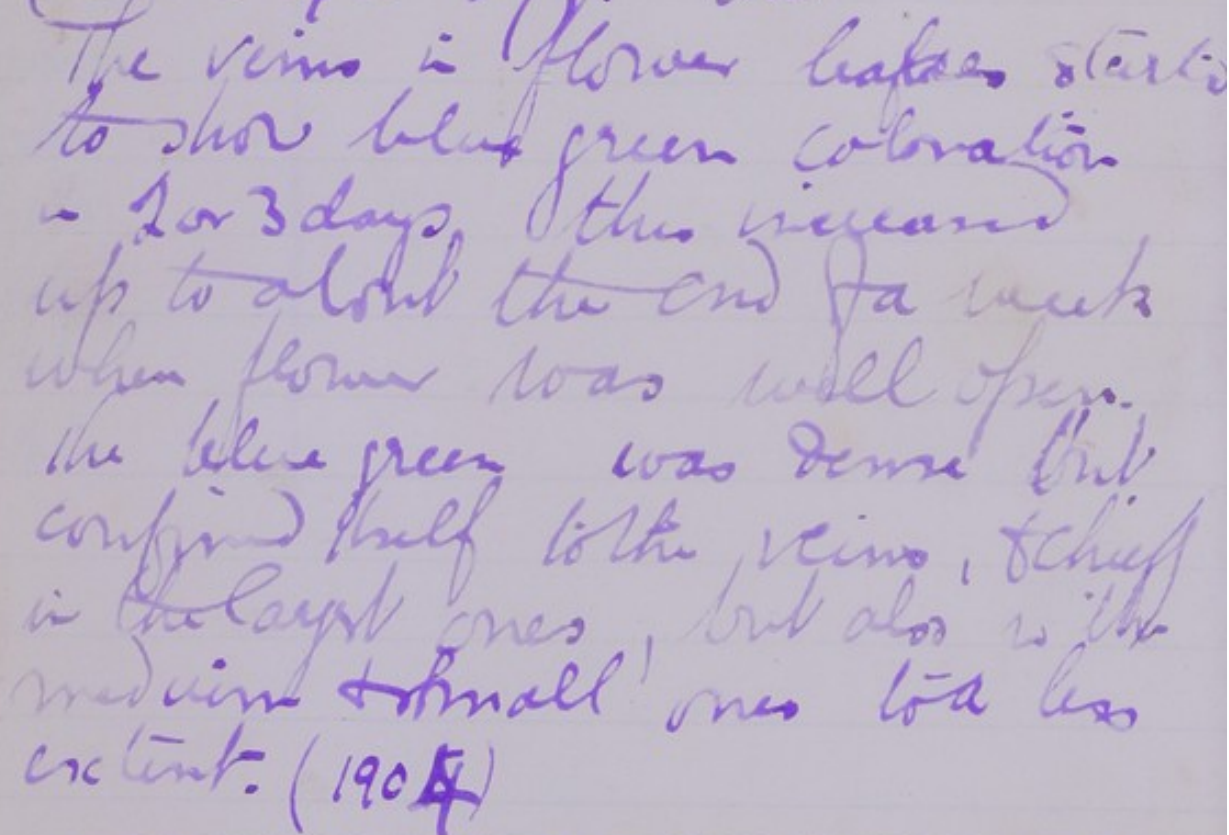 The veins in flower started
to show blue green coloration
in 2 or 3 days, this increased
up to about the end of a week
when flower was well open.
the blue green was dense but
confined itself to the veins, & chiefly
in the largest ones, but also in the
medium & small ones to a less
extent. (1904)